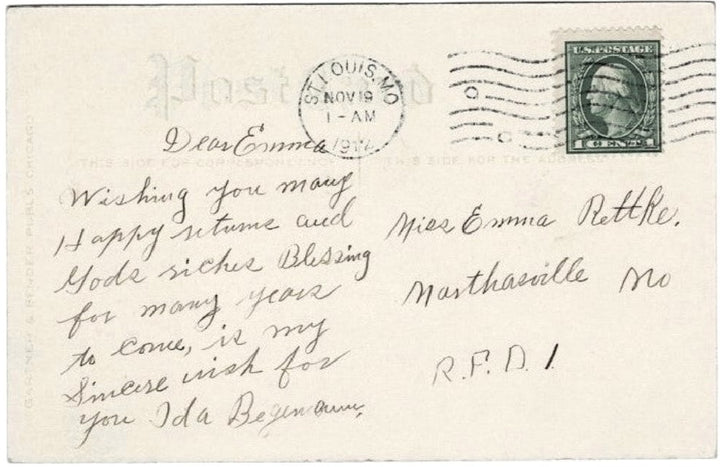 Post Card
ST. LOUIS, MO
NOV 19
1-AM
1912
U.S. POSTAGE
1 CENT 1
THIS SIDE FOR CORRESPONDENCE
THIS SIDE FOR THE ADDRESS
GARTNER & BENDER PUBL'S CHICAGO
Dear Emma
Wishing you many
Happy returns and
Gods riches Blessing
for many years
to come, is my
Sincere wish for
you Ida Begemann.
Miss Emma Rettke.
Marthasville Mo
R.F.D. 1